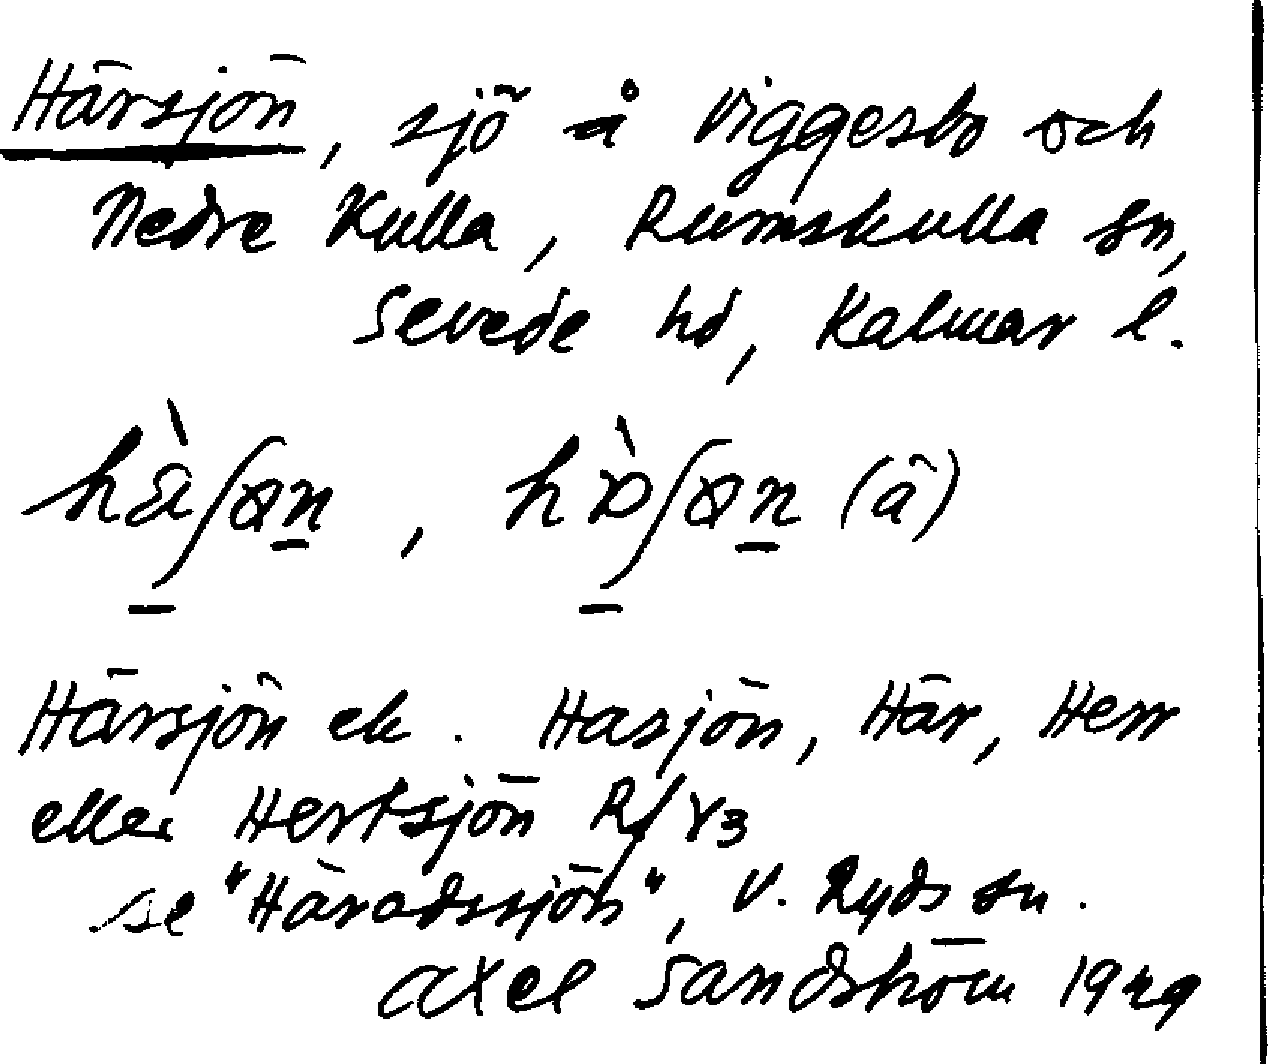 Härsjön, sjö å Viggesbo och
Nedre Kulla, Rumskulla sn,
Sevede hd, Kalmar l.
(â)
Härsjön ek. Hasjön, Här, Herr
eller Hertsjön R/Y3
se "Häradssjön", V. Ryds sn.
Axel Sandström 1929